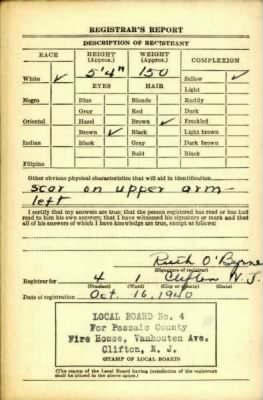 REGISTRAR'S REPORT
DESCRIPTION OF REGISTRANT
RACE HEIGHT (Approx.) WEIGHT (Approx.) COMPLEXION
White ✓ 5'4" 150 Sallow ✓
EYES HAIR Light
Negro Blue Blonde Ruddy
Gray Red Dark
Oriental Hazel Brown ✓ Freckled
Brown ✓ Black Light brown
Indian Black Gray Dark brown
Bald Black
Filipino
Other obvious physical characteristics that will aid in identification
Scar on upper arm-
left
I certify that my answers are true; that the person registered has read or has had
read to him his own answers; that I have witnessed his signature or mark and that
all of his answers of which I have knowledge are true, except as follows:
Ruth O'Byrne
(Signature of registrar)
Registrar for 4 1 Clifton N. J.
(Precinct) (Ward) (City or County) (State)
Date of registration Oct. 16, 1940
LOCAL BOARD No. 4
For Passaic County
Fire House, Vanhouten Ave.
Clifton, N. J.
(STAMP OF LOCAL BOARD)
(The stamp of the Local Board having jurisdiction of the registrant
shall be placed in the above space.)